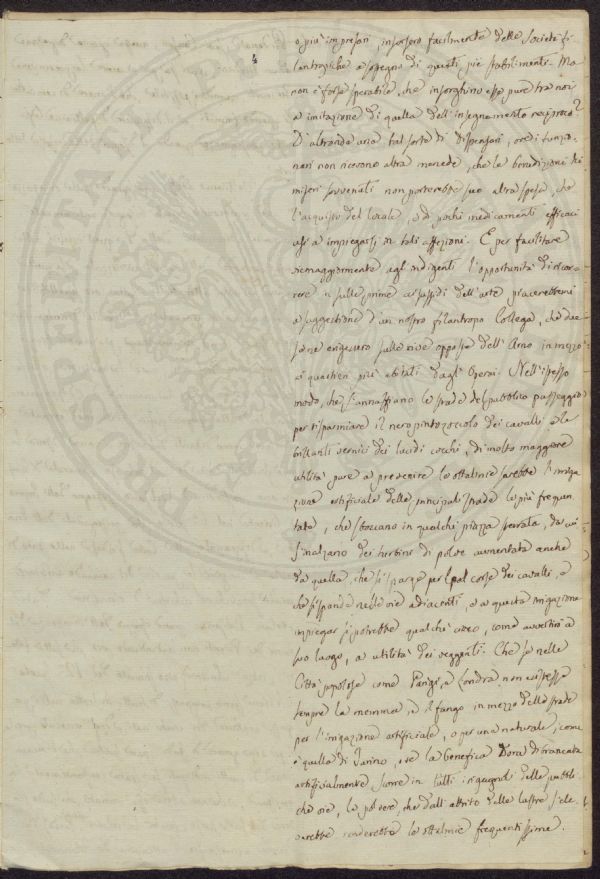 4
o più impresarj insorsero facilmente delle Società fi-
lantropiche a sostegno di questi pii stabilimenti. Ma
non è forse sperabile, che insorghino esse pure tra noi
a imitazione di quella dell'insegnamento reciproco?
D'altronde una tal sorte di dispensarj, ove i funzio-
narj non ricevono altra mercede, che le benedizioni dei
miseri sovvenuti non porterebbe seco altra spesa, che
l'acquisto del locale, e di pochi medicamenti efficaci
usi a impiegarsi in tali affezioni. E per facilitare
viemaggiormente agl'indigenti l'opportunità di ricor-
rere in sulle prime ai sussidj dell'arte piacerebbemi
a suggestione d'un nostro filantropo Collega, che due
se ne erigessero sulle rive opposte dell'Arno in mezzo
ai quartieri più abitati dagli Operai. Nell'istesso
modo, che s'annaffiano le strade del pubblico passeggio
per risparmiare il nero pinto zoccolo dei cavalli e le
brillanti vernici dei lucidi cocchi, di molto maggiore
utilità pure a prevenire le ottalmie sarebbe l'irriga-
zione artificiale delle principali strade le più frequen-
tate, che sboccano in qualche piazza sterrata, da cui
s'inalzano dei turbini di polve aumentata anche
da quella, che si sparge pel corso dei cavalli, e
che si spande nelle vie adiacenti, e a questa irrigazione
impiegar si potrebbe qualche cieco, come avvertirò a
suo luogo, a utilità dei veggenti. Che se nelle
Città popolose come Parigi, e Londra non esistesse
sempre la memma, e il fango in mezzo delle strade
per l'irrigazione artificiale, o per una naturale, come
è quella di Torino, ove la benefica Dora diramata
artificialmente scorre in tutti i quadrati delle pubbli-
che vie, la polvere, che dall'attrito delle lastre s'ele-
varebbe renderebbe le ottalmie frequentissime.